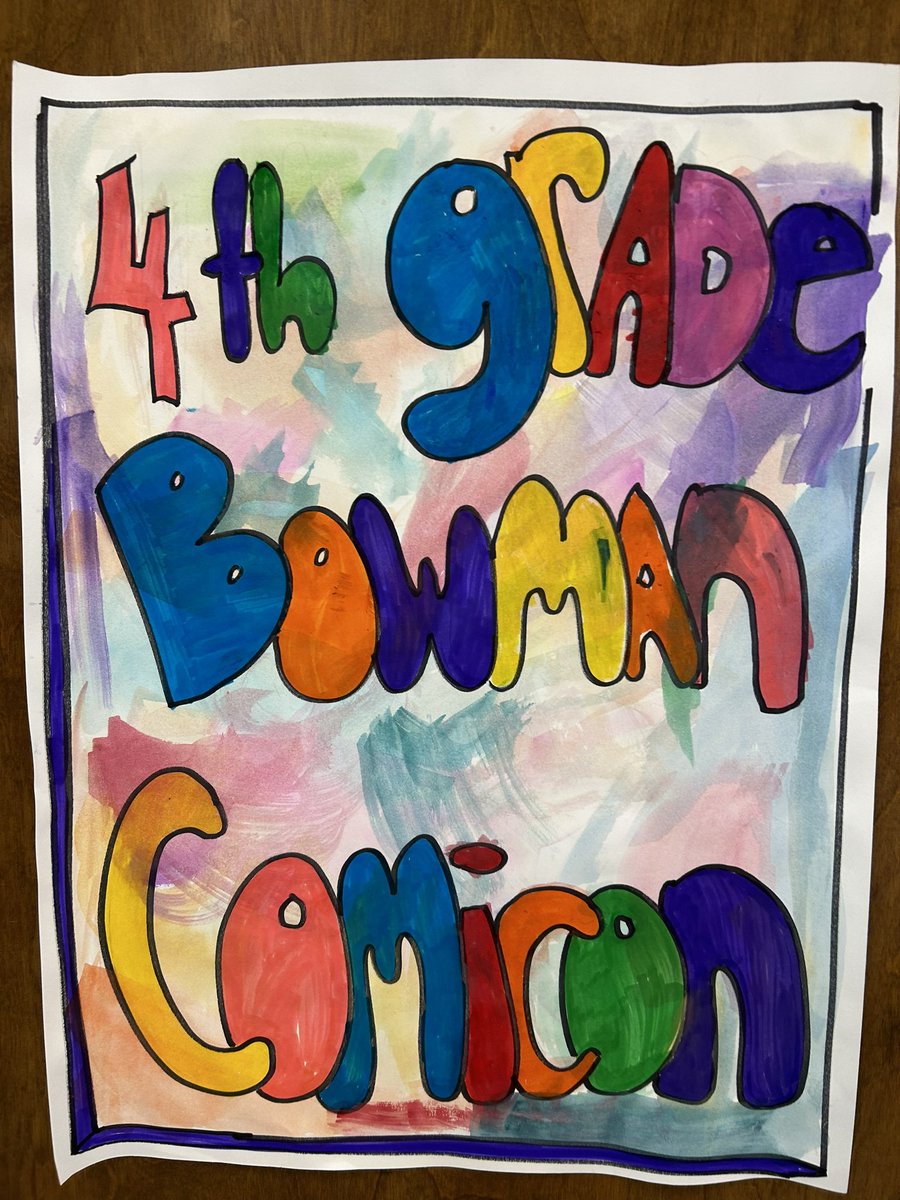 4th grADe
BOWMAn
COMiCOn